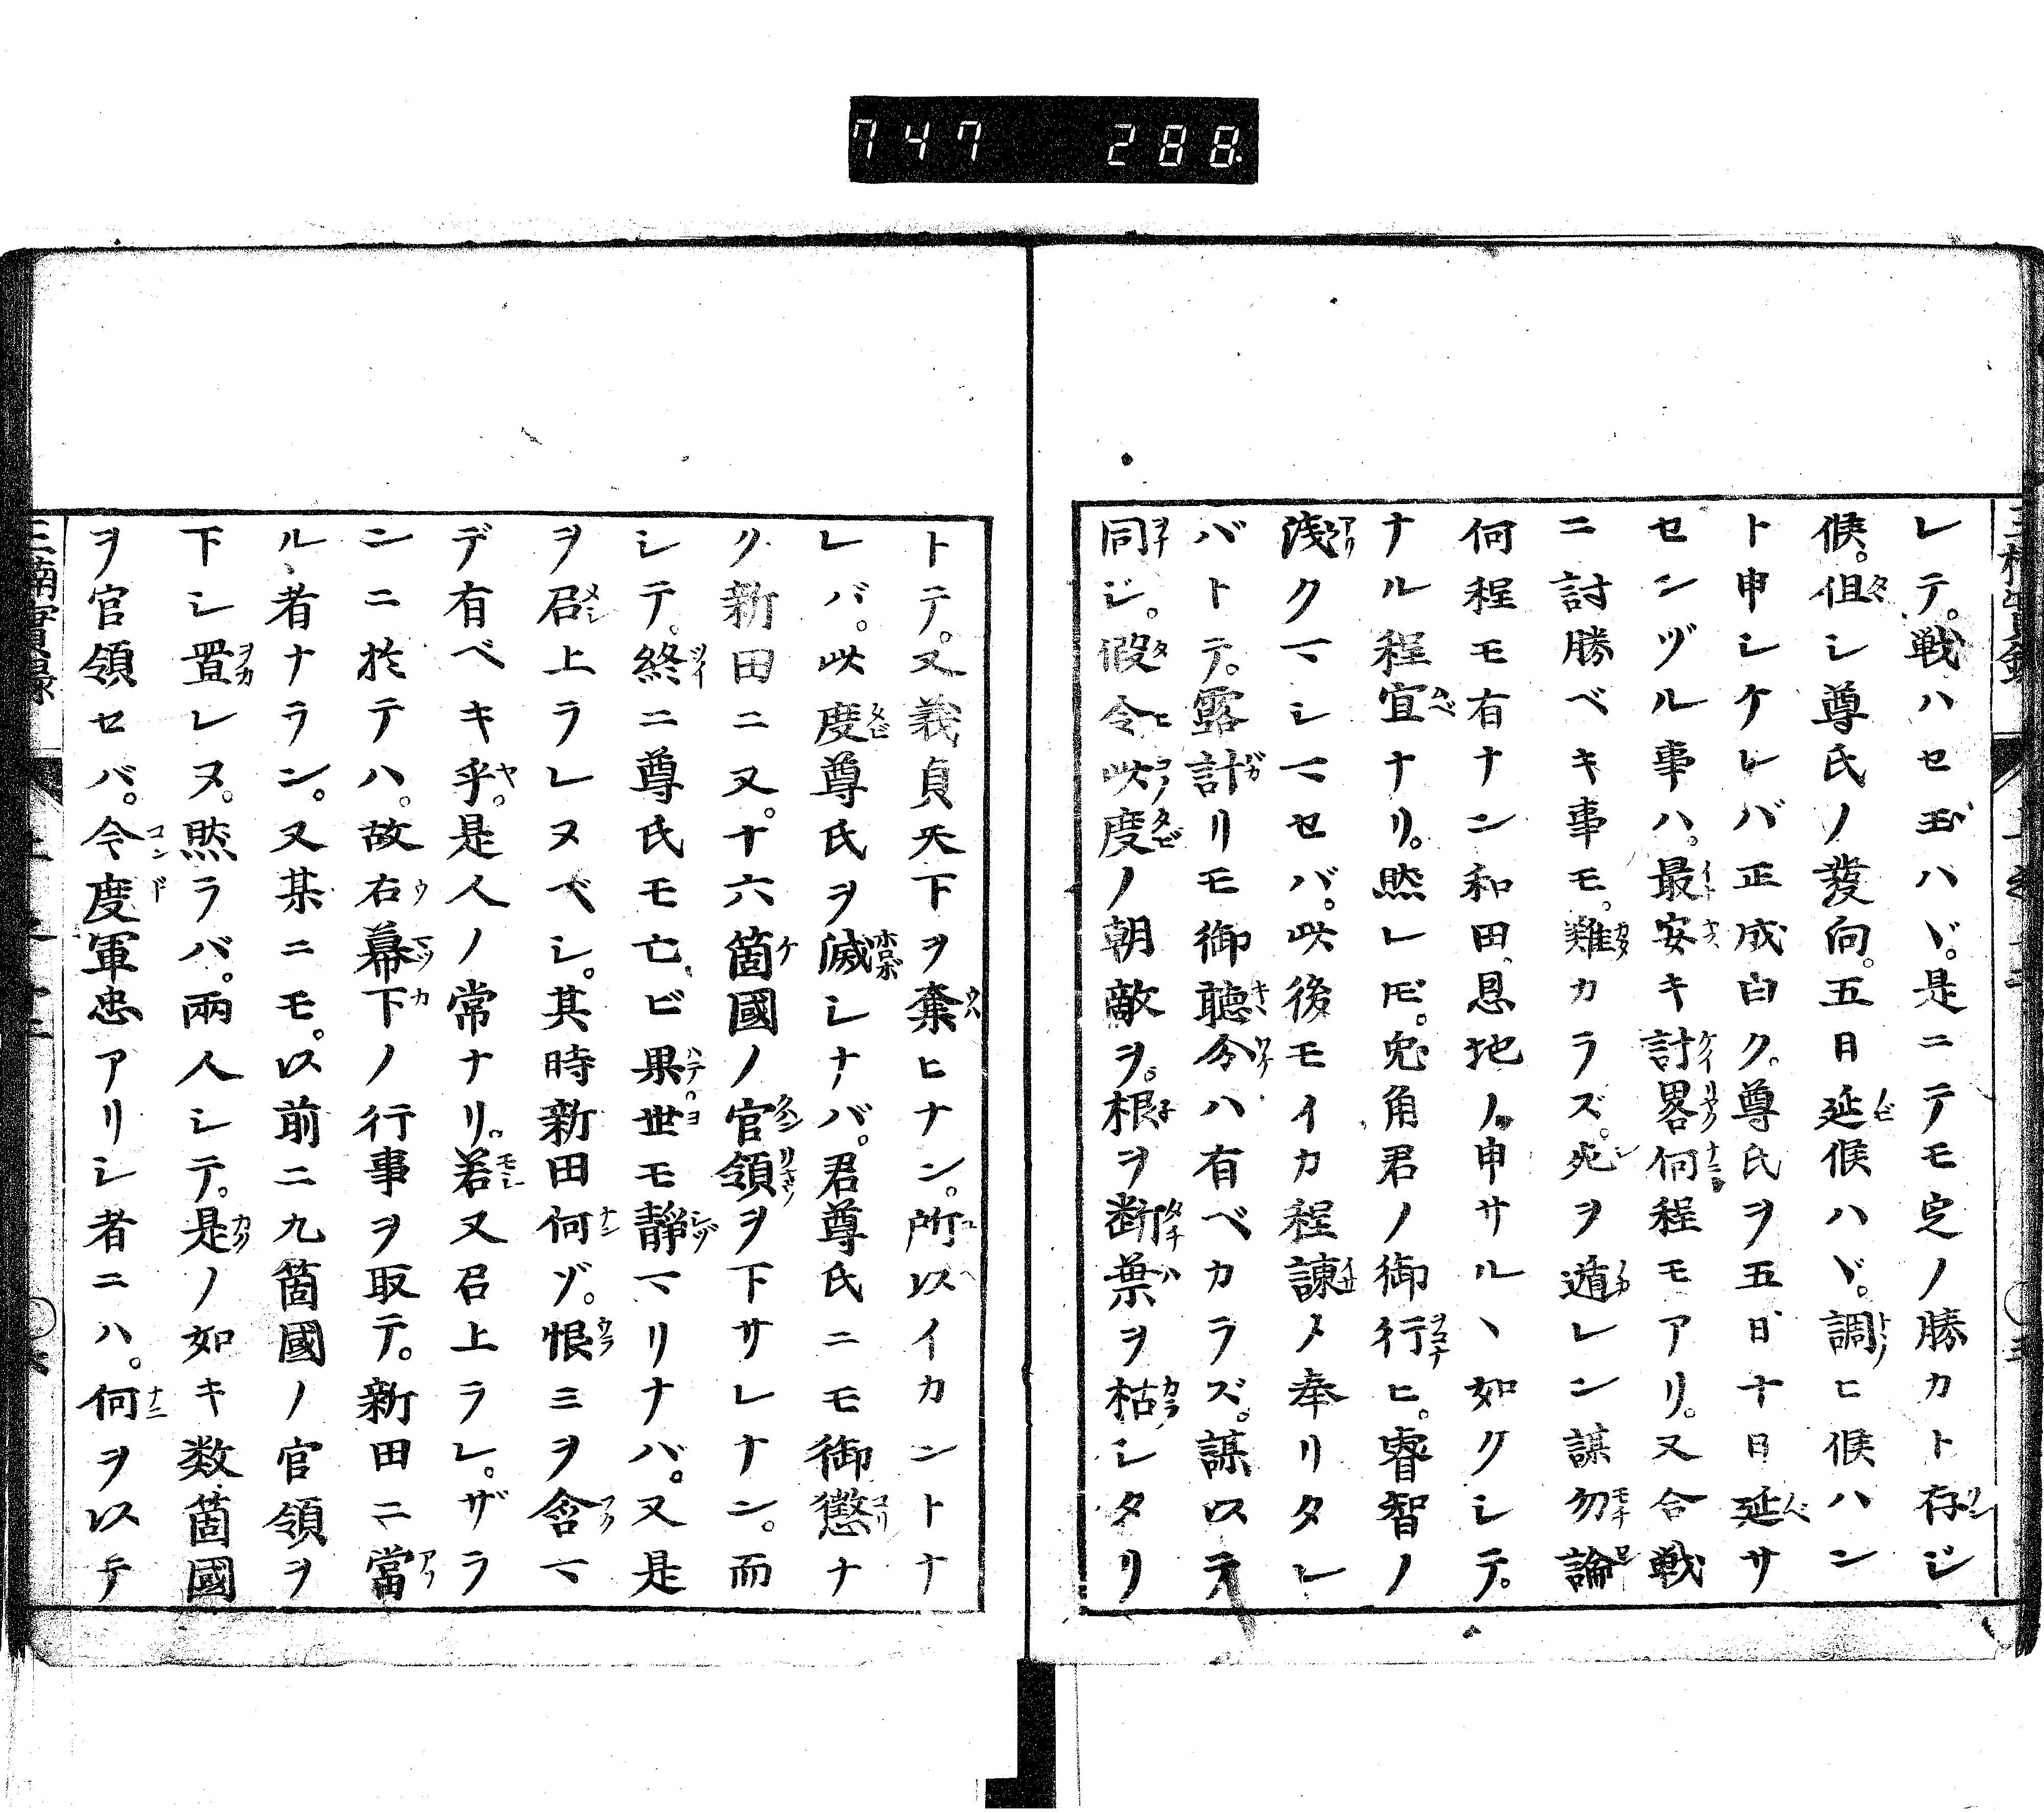 747 288
レテ。戦ハセ玉ハヾ。是ニテモ定ノ勝カト存ジ
候。但シ尊氏ノ發向。五日延候ハヾ。調ヒ候ハン
ト申シケレバ正成白ク。尊氏ヲ五日十日延サ
センヅル事ハ。最安キ計畧何程モアリ。又合戦
ニ討勝ベキ事モ。難カラズ。死ヲ遁レン謀勿論
何程モ有ナン和田、恩地ノ申サルヽ如クシテ。
ナル程宜ナリ。然レ𪜈。兎角君ノ御行ヒ。睿智ノ
淺クマシマセバ。此後モイカ程諫メ奉リタレ
バトテ。露計リモ御聽令ハ有ベカラズ。謀以テ
同ジ。假令此度ノ朝敵ヲ。根ヲ断葉ヲ枯シタリ
トテ。又義貞天下ヲ棄ヒナン。所以イカントナ
レバ。此度尊氏ヲ滅シナバ。君尊氏ニモ御懲ナ
リ新田ニ又。十六箇國ノ官領ヲ下サレナン。而
シテ。終ニ尊氏モ亡ビ果。世モ静マリナバ。又是
ヲ召上ラレヌベシ。其時新田何ゾ。恨ミヲ含マ
デ有ベキ乎。是人ノ常ナリ。若又召上ラレ。ザラ
ンニ於テハ。故右幕下ノ行事ヲ取テ。新田ニ當
ル者ナラン。又某ニモ。以前ニ九箇國ノ官領ヲ
下シ置レヌ。然ラバ。兩人シテ。是ノ如キ数箇國
ヲ官領セバ。今度軍忠アリシ者ニハ。何ヲ以テ